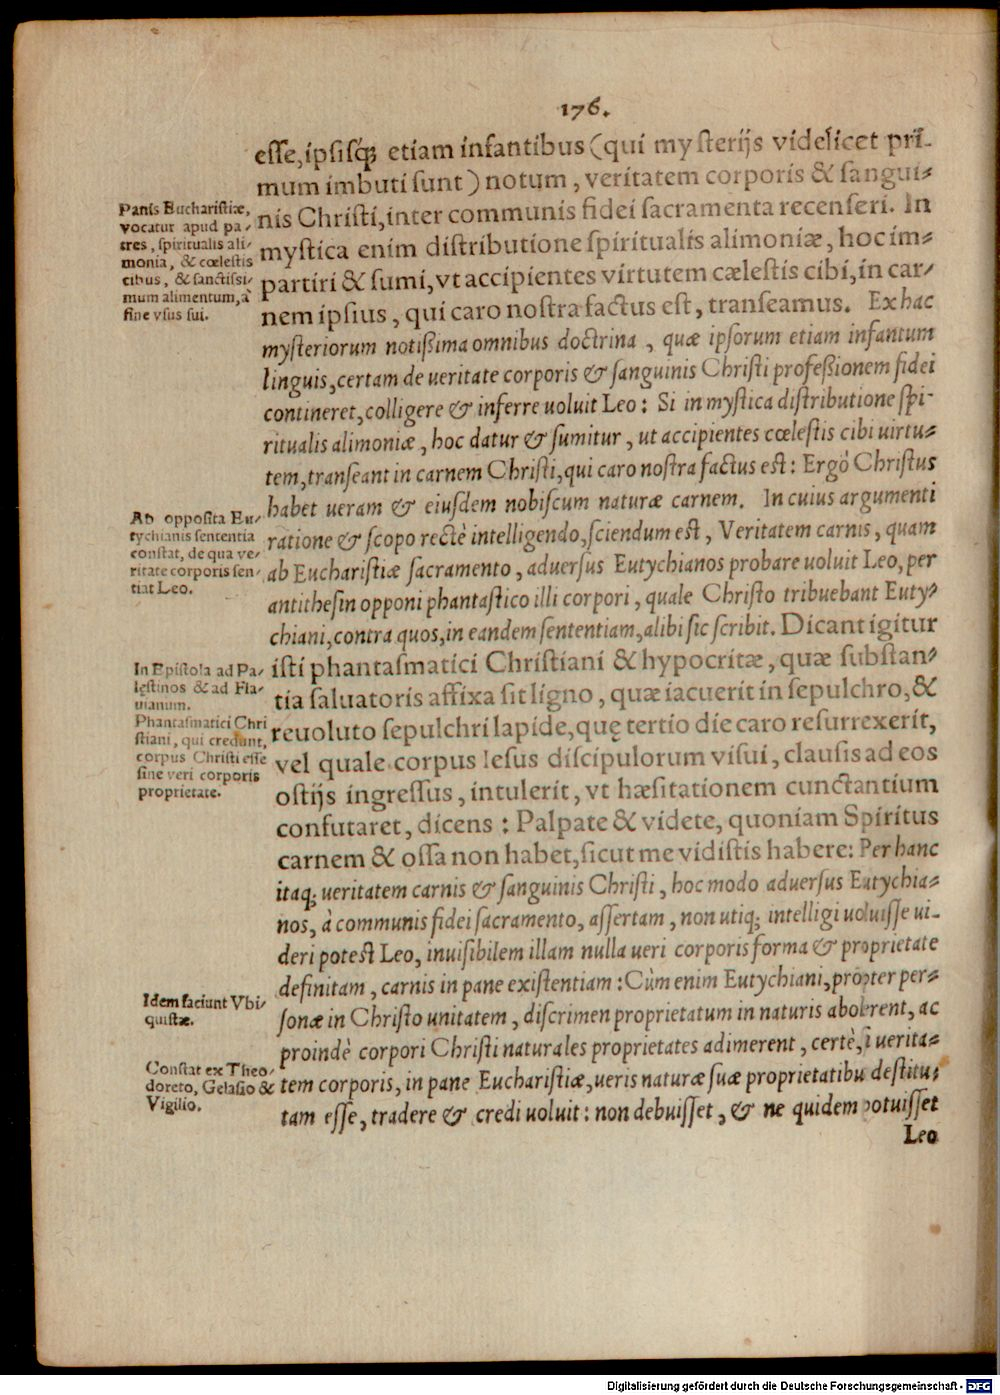 176.
esse, ipsisq́; etiam infantibus (qui mysterijs videlicet pri-
mum imbuti sunt) notum, veritatem corporis & sangui-
nis Christi, inter communis fidei sacramenta recenseri. In
mystica enim distributione spiritualis alimoniæ, hoc im-
partiri & sumi, vt accipientes virtutem cælestis cibi, in car-
nem ipsius, qui caro nostra factus est, transeamus. Ex hac
mysteriorum notißima omnibus doctrina, quæ ipsorum etiam infantum
linguis, certam de ueritate corporis & sanguinis Christi profeßionem fidei
contineret, colligere & inferre uoluit Leo: Si in mystica distributione spi-
ritualis alimoniæ, hoc datur & sumitur, ut accipientes cœlestis cibi uirtu-
tem, transeant in carnem Christi, qui caro nostra factus est: Ergò Christus
habet ueram & eiusdem nobiscum naturæ carnem. In cuius argumenti
ratione & scopo rectè intelligendo, sciendum est, Veritatem carnis, quam
ab Eucharistiæ sacramento, aduersus Eutychianos probare uoluit Leo, per
antithesin opponi phantastico illi corpori, quale Christo tribuebant Euty-
chiani, contra quos, in eandem sententiam, alibi sic scribit. Dicant igitur
isti phantasmatici Christiani & hypocritæ, quæ substan-
tia saluatoris affixa sit ligno, quæ iacuerit in sepulchro, &
reuoluto sepulchri lapide, quę tertio die caro resurrexerit,
vel quale corpus Iesus discipulorum visui, clausis ad eos
ostijs ingressus, intulerit, vt hæsitationem cunctantium
confutaret, dicens: Palpate & videte, quoniam Spiritus
carnem & ossa non habet, sicut me vidistis habere: Per hanc
itaq; ueritatem carnis & sanguinis Christi, hoc modo aduersus Eutychia-
nos, à communis fidei sacramento, assertam, non utiq; intelligi uoluisse ui-
deri potest Leo, inuisibilem illam nulla ueri corporis forma & proprietate
definitam, carnis in pane existentiam: Cùm enim Eutychiani, propter per-
sonæ in Christo unitatem, discrimen proprietatum in naturis abolerent, ac
proindè corpori Christi naturales proprietates adimerent, certè, si uerita-
tem corporis, in pane Eucharistiæ, ueris naturæ suæ proprietatibu destitu-
tam esse, tradere & credi uoluit: non debuisset, & ne quidem potuisset
Leo
Panis Eucharistiæ,
vocatur apud pa-
tres, spiritualis ali-
monia, & cœlestis
cibus, & sanctissi-
mum alimentum, à
fine vsus sui.
Ab opposita Eu-
tychianis sententia
constat, de qua ve-
ritate corporis sen-
tiat Leo.
In Epistola ad Pa-
lestinos & ad Fla-
uianum.
Phantasmatici Chri
stiani, qui credunt,
corpus Christi esse
sine veri corporis
proprietate.
Idem faciunt Vbi-
quistæ.
Constat ex Theo-
doreto, Gelasio &
Vigilio.
Digitalisierung gefördert durch die Deutsche Forschungsgemeinschaft - DFG